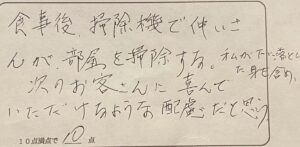 食事後、掃除機で仲いさ
んが、部屋を掃除する。私が下に落とし
た身も含め、
次のお客さんに喜んで
いただけるような配慮だと思う
10点満点で 10 点